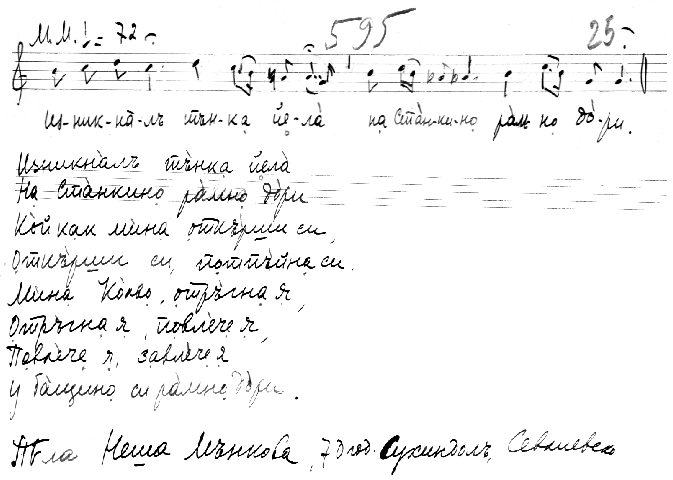 М.М. ♩= 72 595 25
из-ник-нá-лъ тъ̀н-ка йе̣-лà на Стàн-ки-но рàм-но дò-ри.
Изникнàлъ тъ̀нка йелà
На Стàнкино рàмно дòри
Кой как мина откъ̀рши си,
Откъ̀рши си, потпъ̀йна си.
Мина Кольо, отръ̀гна я,
Отръ̀гна я, повлèче я,
Повлèче я, завлèче я
У бàщино си рàмно дòри.
Пѣла Неша Мъ̀нкова, 73 год. Сухиндолъ, Севлиевско